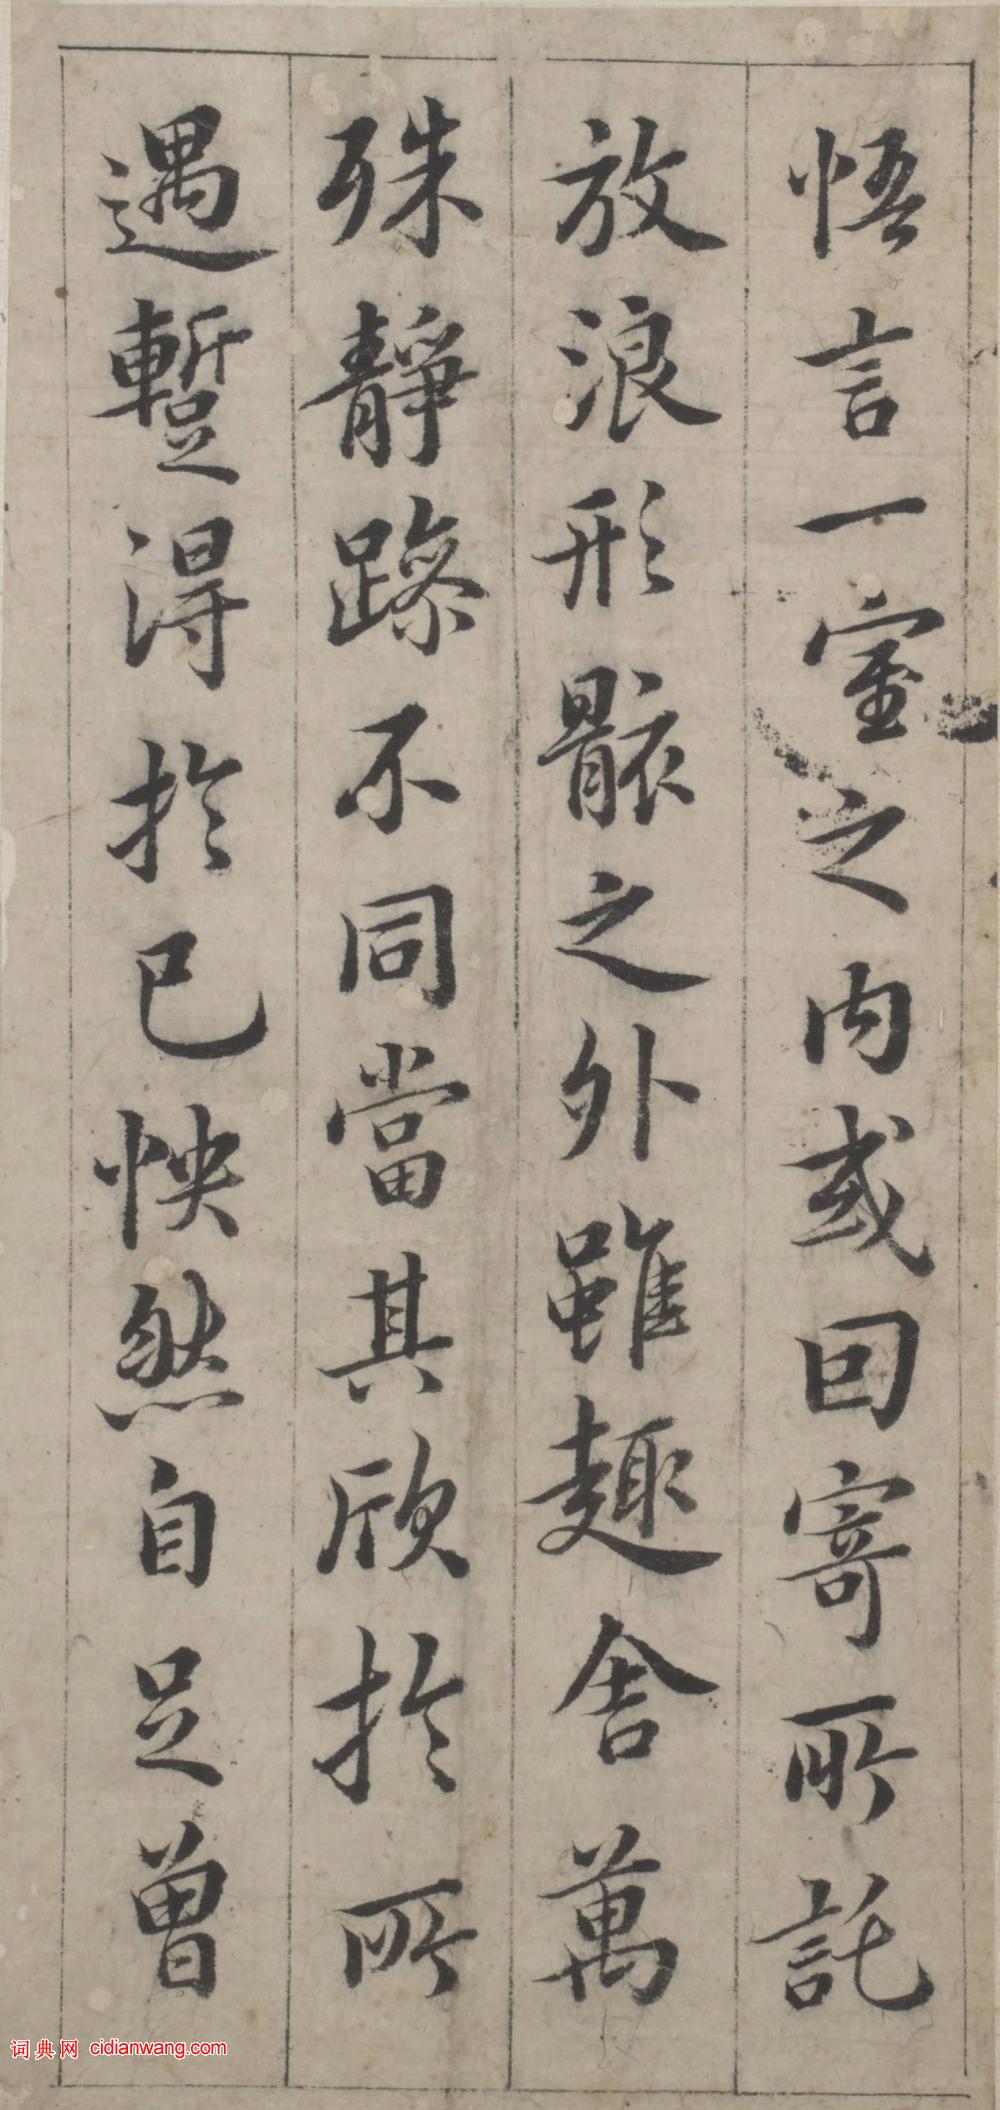 悟言一室之内或回寄所託
放浪形骸之外雖趣舍萬
殊靜躁不同當其欣於所
遇蹔得於己怏然自足曾
词典网 cidianwang.com